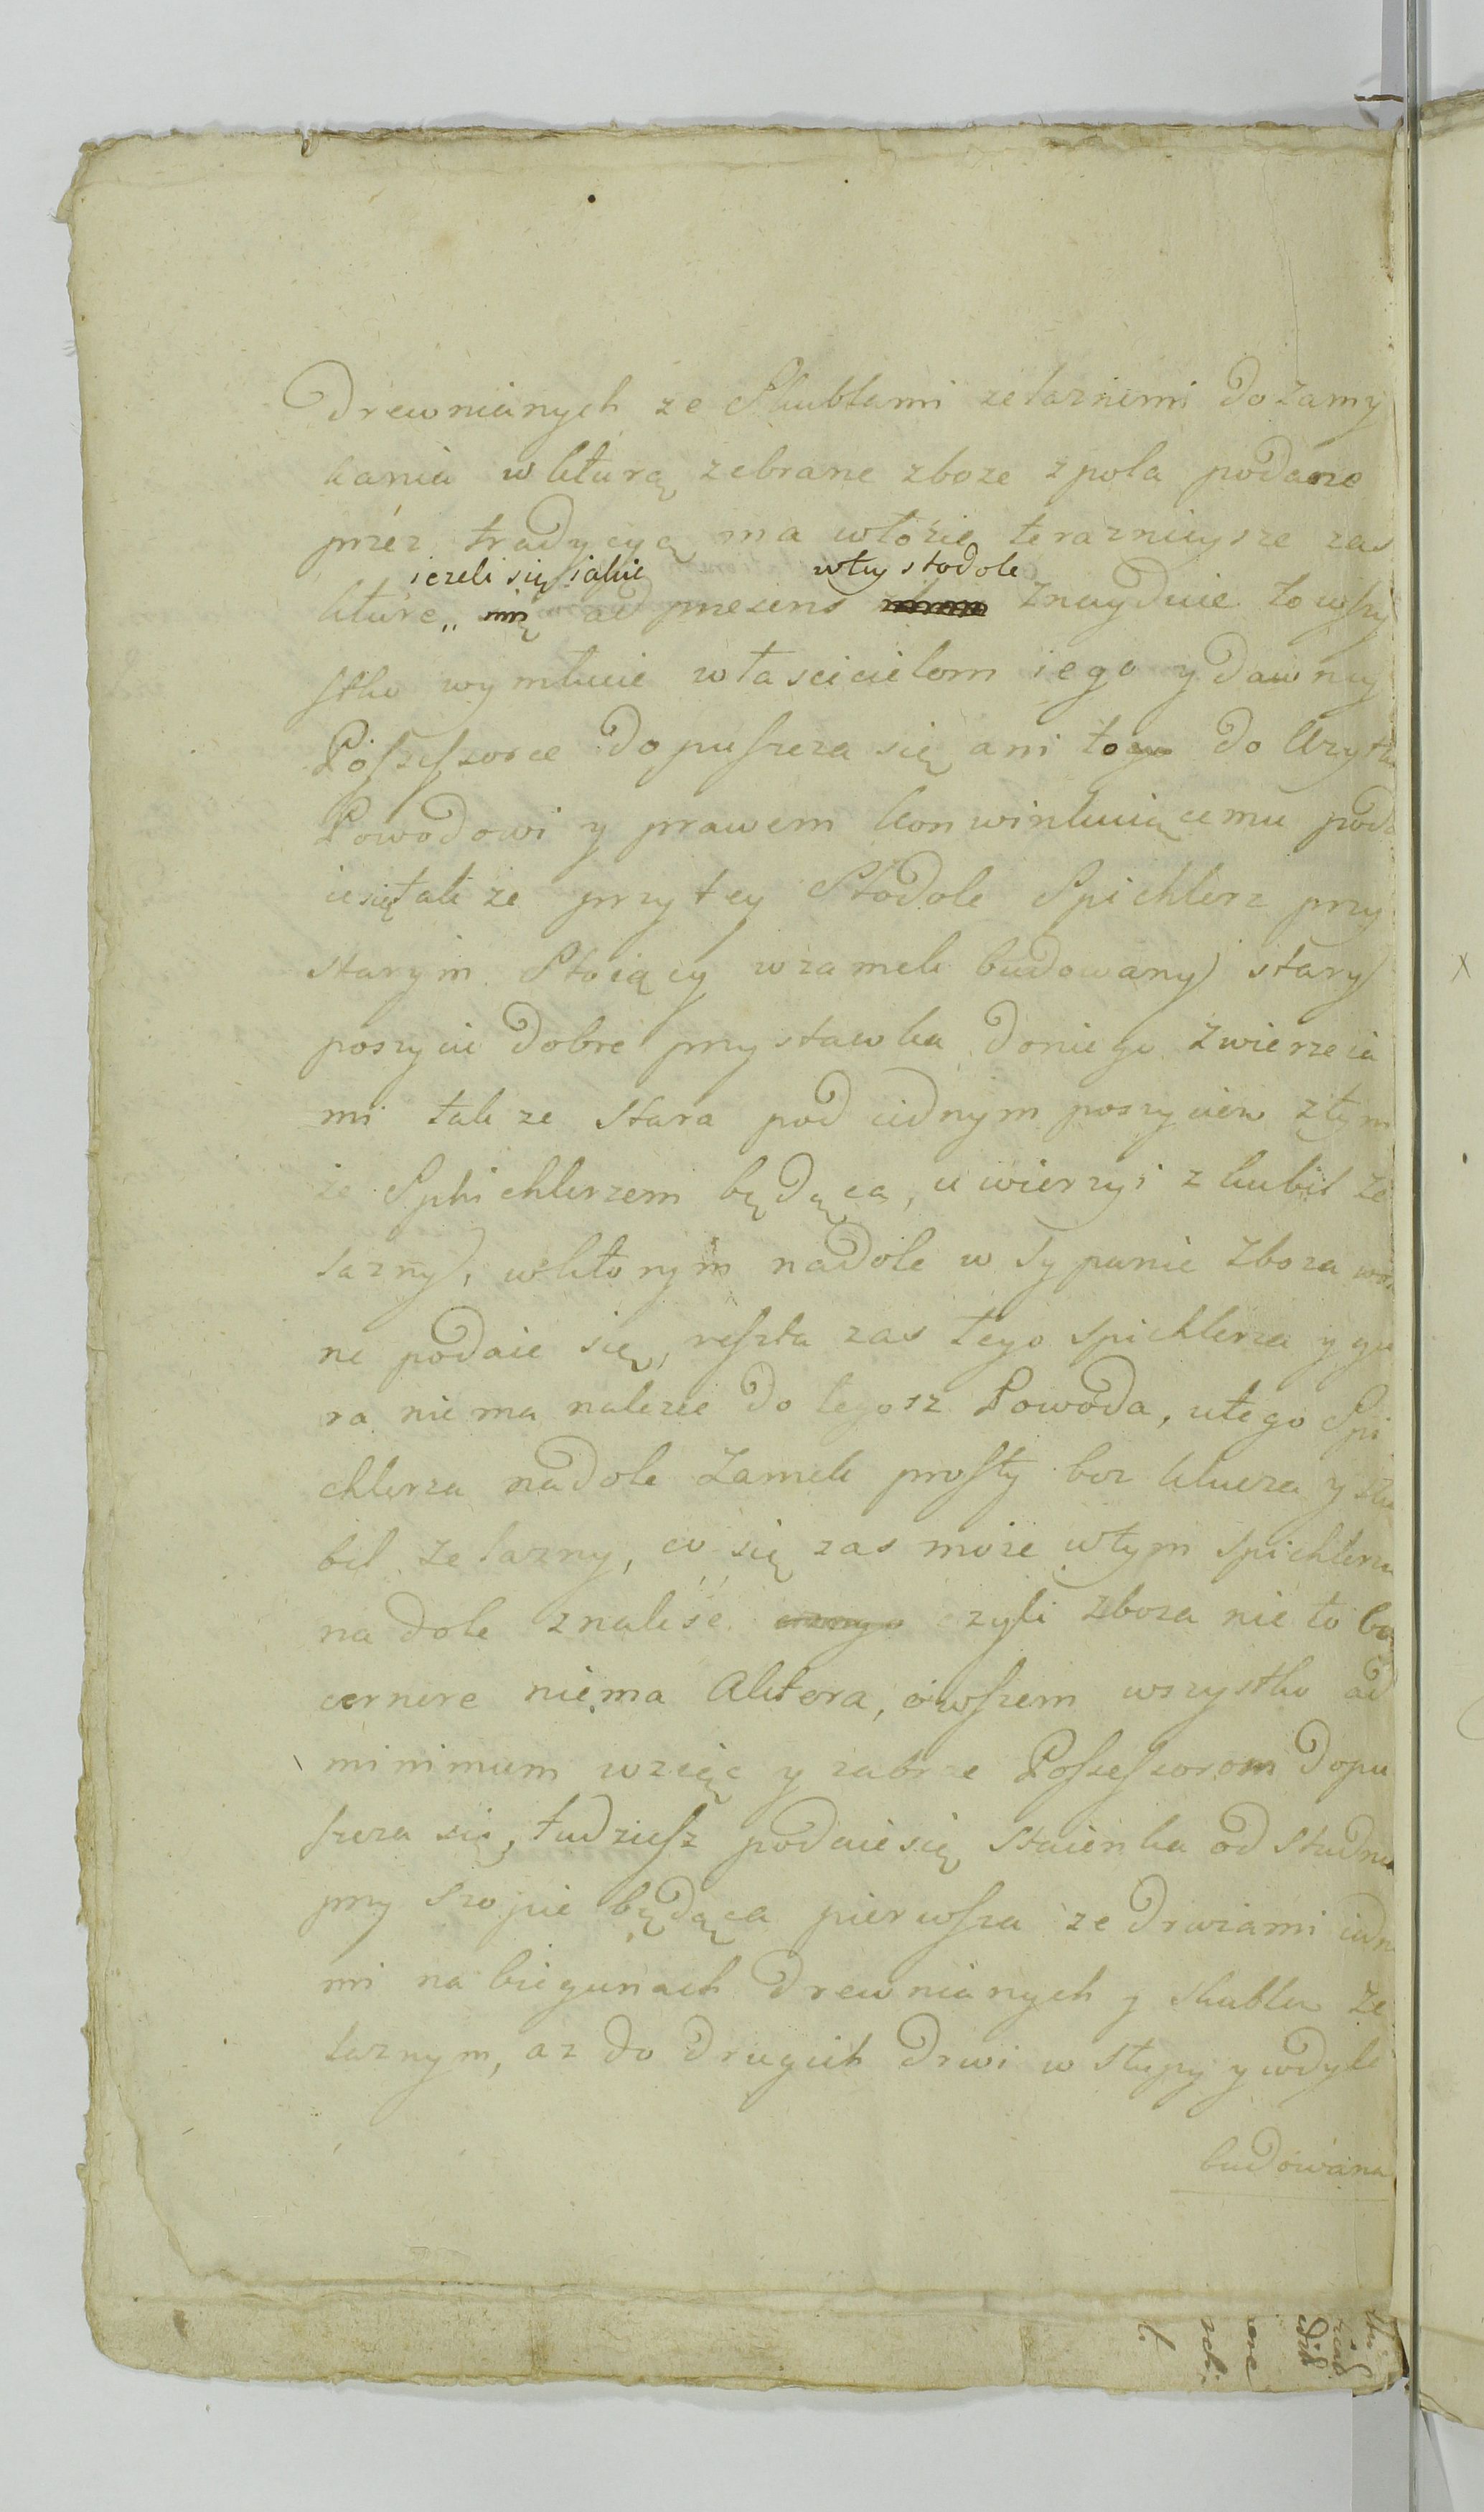 Drewnianych ze Skublami zelaznemi do zamy
kania w kturą zebrane zboze z pola podane
przéz tradycyą ma włożic teraznieysze zas
iezeli się iakie w tey stodole
kture„ ad presens znayduie to wszy
stko wymłucic własciciełom iego y dawney
Possessorce dopuszcza się ani to do Uzytku
Powodowi y prawem konwinkuiącemu poda
ie się takze przy tey Stodole Spichlerz przy
starym Stoiący w zamek budowany stary
poszycie dobre przystawka do niego z wierzeia
mi takze stara pod iednym poszyciem z tym
ze Sphichlerzem będąca, u wierzyi z kubil ze
lazny, w ktorym na dole w sypanie zboza wol
ne podaie się, reszta zas tego spichlerza y gu
ra nie ma nalezec do tegosz Powoda, u tego Spi
chlerza na dole Zamek prosty bez klucza y sku
bil zelazny, co się zas moze w tym spichlerzu
na dole znalesc czyli zboza nie to
cernere nie ma Aktora, owszem wszystko ad
minimum wziąc y zabrac Possessorom dopu
szcza się, tudziesz podaie się staienka od studni
przy szopie będąca pierwsza ze drwiami iedne
mi na biegunach drewnianych y skublem ze
laznym, az do drugich drwi w słupy y w dyle
budowana